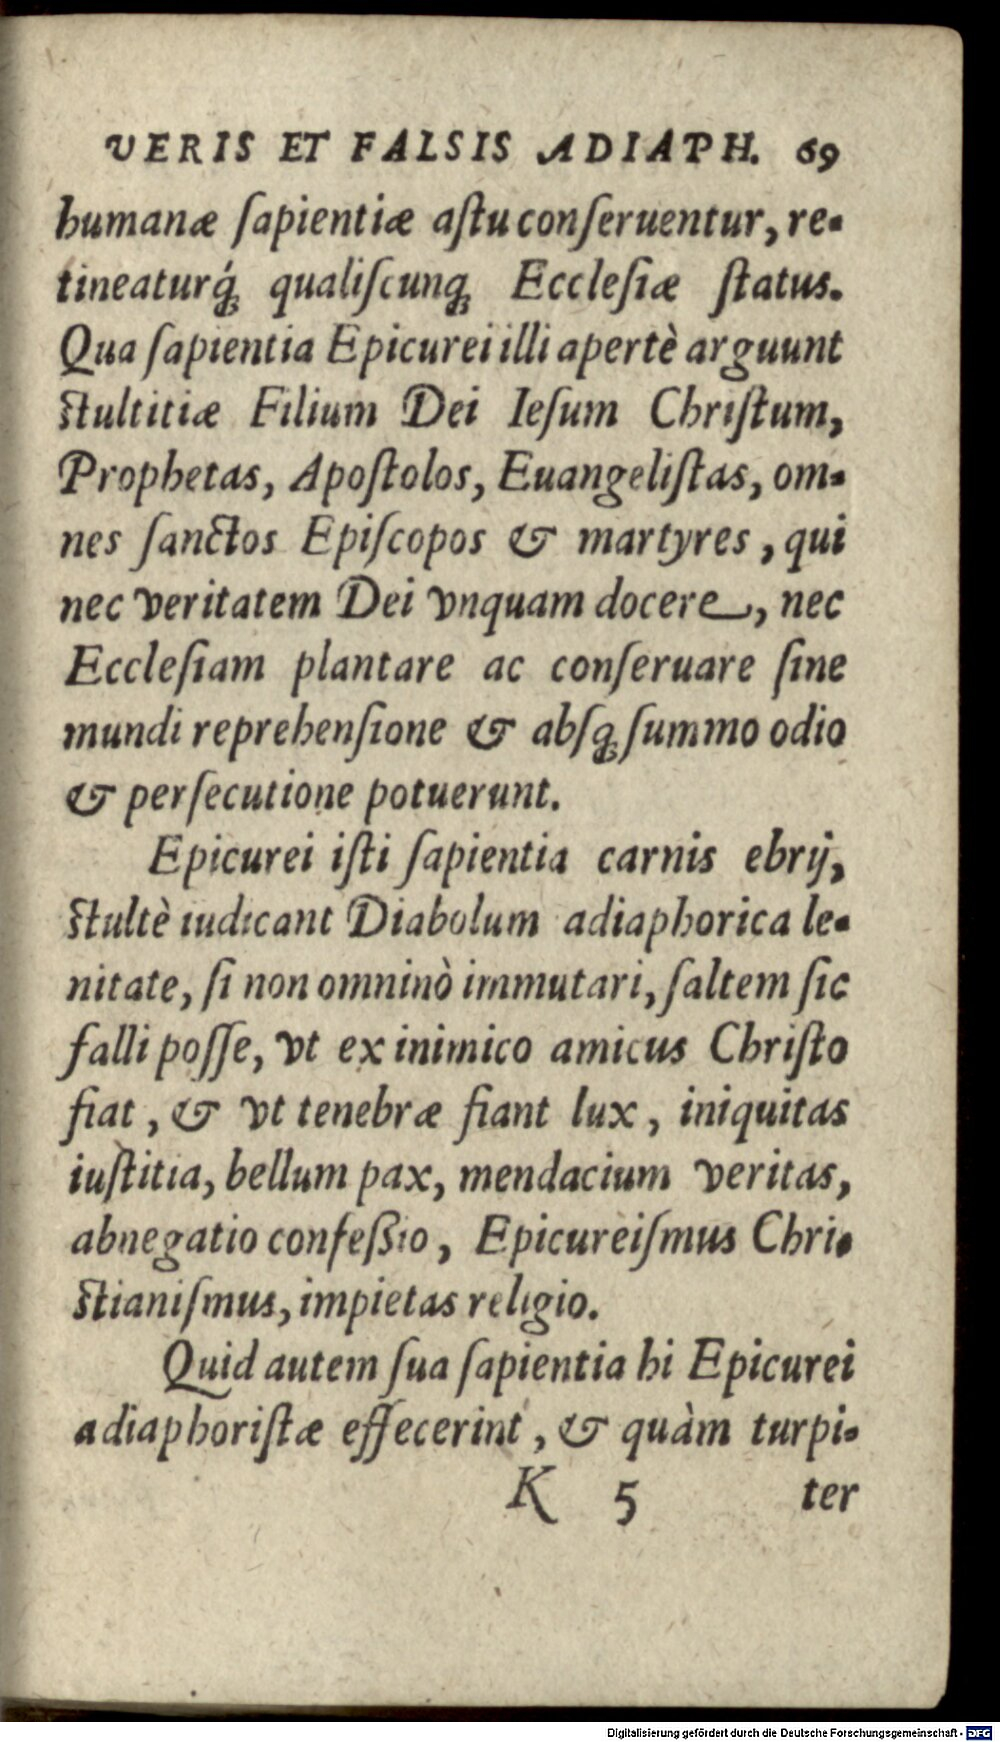 VERIS ET FALSIS ADIAPH. 69
humanæ ſapientiæ aſtu conſeruentur, re-
tineaturq́; qualiſcunq; Eccleſiæ ſtatus.
Qua ſapientia Epicurei illi apertè arguunt
ſtultitiæ Filium Dei Ieſum Chriſtum,
Prophetas, Apoſtolos, Euangeliſtas, om-
nes ſanctos Epiſcopos & martyres, qui
nec veritatem Dei vnquam docere, nec
Eccleſiam plantare ac conſeruare ſine
mundi reprehenſione & abſq; ſummo odio
& perſecutione potuerunt.
Epicurei iſti ſapientia carnis ebrij,
ſtultè iudicant Diabolum adiaphorica le-
nitate, ſi non omninò immutari, ſaltem ſic
falli poſſe, vt ex inimico amicus Chriſto
fiat, & vt tenebræ fiant lux, iniquitas
iuſtitia, bellum pax, mendacium veritas,
abnegatio confeßio, Epicureiſmus Chri-
ſtianiſmus, impietas religio.
Quid autem ſua ſapientia hi Epicurei
adiaphoriſtæ effecerint, & quàm turpi-
K 5 ter
Digitalisierung gefördert durch die Deutsche Forschungsgemeinschaft - DFG